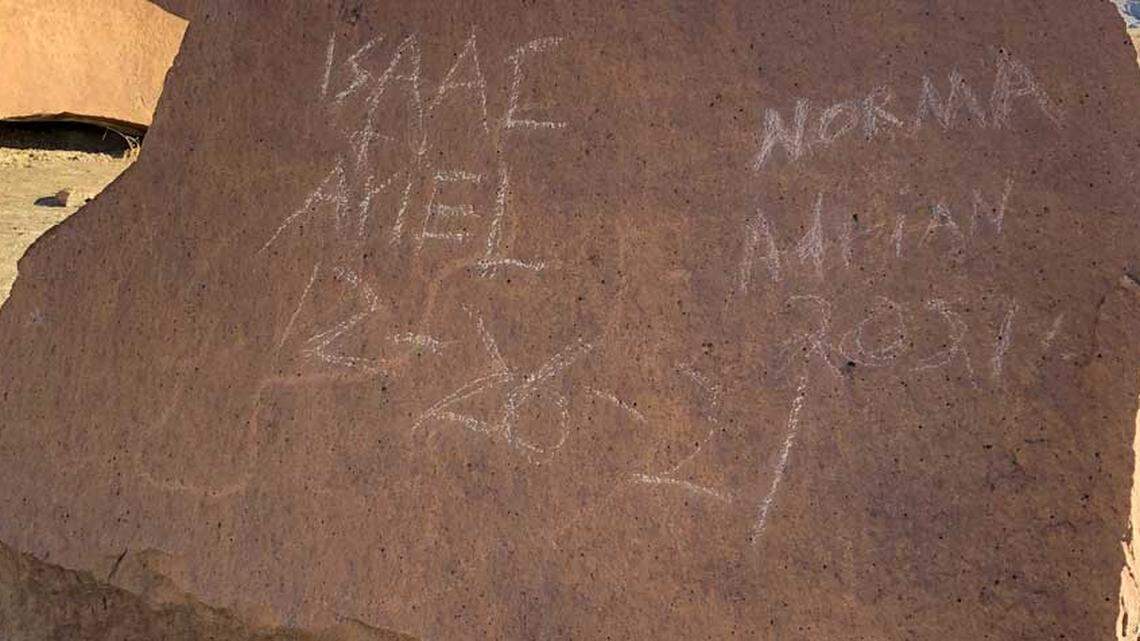 ISAAC
ARIEL
12-28-21
NORMA
AdriAN
2021